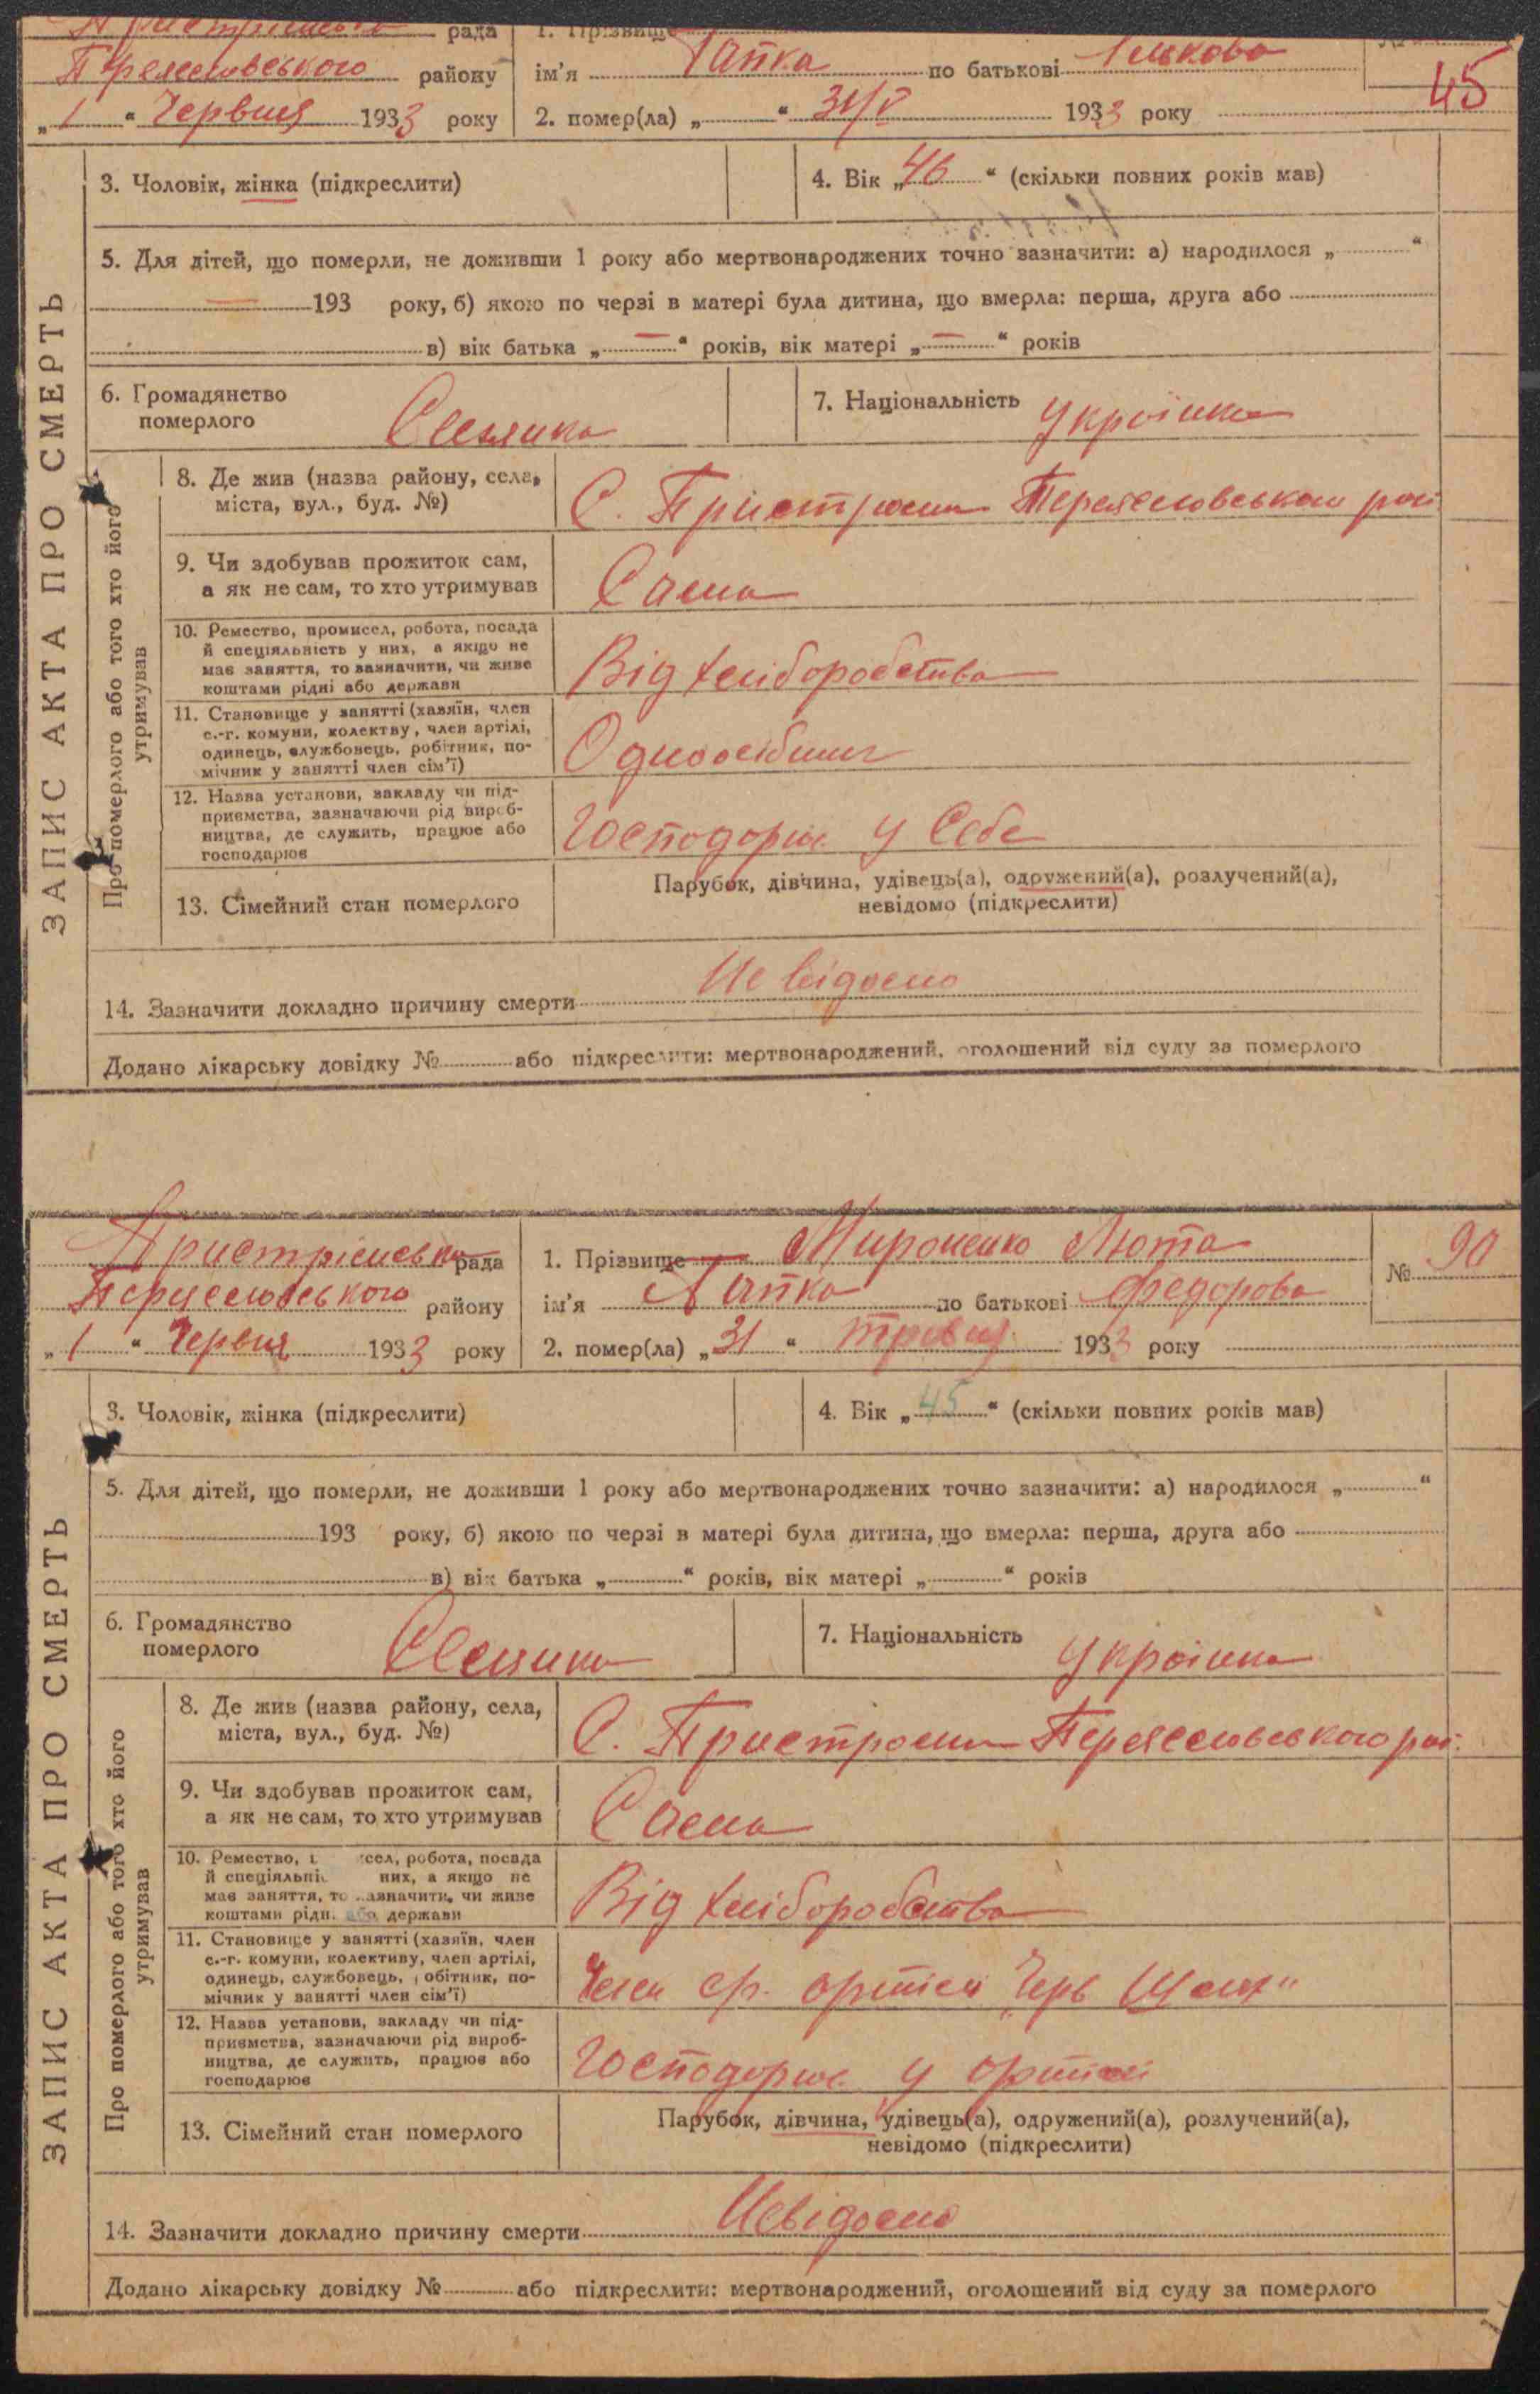 рада 1. Прізвище
Переяславського району ім'я Гапка по батькові
„ 1 “ Червня 1933 року 2. помер(ла) „ “ 31/V 1933 року 45
3. Чоловік, жінка (підкреслити) 4. Вік „ 46 “ (скільки повних років мав)
5. Для дітей, що померли, не доживши 1 року або мертвонароджених точно зазначити: а) народилося „ “
— 193 року, б) якою по черзі в матері була дитина, що вмерла: перша, друга або
в) вік батька „ — “ років, вік матері „ — “ років
6. Громадянство померлого Селянка 7. Національність Українка
8. Де жив (назва району, села, міста, вул., буд. №) С. Пристроми Переяславського рай
9. Чи здобував прожиток сам, а як не сам, то хто утримував Сама
10. Ремество, промисел, робота, посада й спеціяльність у них, а якщо не має заняття, то зазначити, чи живе коштами рідні або держави Від хліборобства
11. Становище у занятті (хазяїн, член с.-г. комуни, колектву, член артілі, одинець, службовець, робітник, помічник у занятті член сім'ї) Одноосібниц
12. Назва установи, закладу чи підприємства, зазначаючи рід виробництва, де служить, працює або господарює Господорює У Себе
13. Сімейний стан померлого Парубок, дівчина, удівець(а), одружений(а), розлучений(а), невідомо (підкреслити)
14. Зазначити докладно причину смерти Не відомо
Додано лікарську довідку № або підкреслити: мертвонароджений, оголошений від суду за померлого
ЗАПИС АКТА ПРО СМЕРТЬ
Про померлого або того хто його утримував
Пристрімська рада 1. Прізвище Мироненко Люта № 90
Переяславського району ім'я Гапка по батькові Федорова
„ 1 “ Червня 1933 року 2. помер(ла) „ 31 “ травня 1933 року
3. Чоловік, жінка (підкреслити) 4. Вік „ 45 “ (скільки повних років мав)
5. Для дітей, що померли, не доживши 1 року або мертвонароджених точно зазначити: а) народилося „ “
193 року, б) якою по черзі в матері була дитина, що вмерла: перша, друга або
в) вік батька „ “ років, вік матері „ “ років
6. Громадянство померлого Селянка 7. Національність Українка
8. Де жив (назва району, села, міста, вул., буд. №) С. Пристроми Переяславського рай.
9. Чи здобував прожиток сам, а як не сам, то хто утримував Сама
10. Ремество, робота, посада й них, а якщо не має заняття, то зазначити, чи живе коштами рідн. або держави Від хліборобства
11. Становище у занятті (хазяїн, член с.-г. комуни, колективу, член артілі, одинець, службовець, робітник, помічник у занятті член сім'ї) Член ср. артілі „Черв Шлях“
12. Назва установи, закладу чи підприємства, зазначаючи рід виробництва, де служить, працює або господарює Господорює у ортілі
13. Сімейний стан померлого Парубок, дівчина, удівець(а), одружений(а), розлучений(а), невідомо (підкреслити)
14. Зазначити докладно причину смерти Невідомо
Додано лікарську довідку № або підкреслити: мертвонароджений, оголошений від суду за померлого
ЗАПИС АКТА ПРО СМЕРТЬ
Про померлого або того хто його утримував